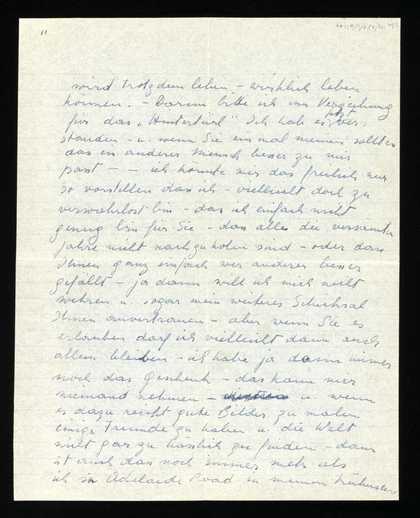 "
wird trotzdem leben – wirklich leben
können. – Darum bitte ich um Vergebung
für das „Hintertürl" Ich hab es jetzt ver-
standen – u. wenn Sie einmal meinen sollten
das ein anderer Mensch besser zu mir
passt – – ich könnte mir das freilich nur
so vorstellen das ich – vielleicht doch zu
verwahrlost bin – das ich einfach nicht
genug bin für Sie – das alles die versäumten
Jahre nicht nachzuholen sind – oder das
Ihnen ganz einfach wer anderer besser
gefällt – ja dann will ich mich nicht
wehren u. sogar mein weiteres Schicksal
Ihnen anvertrauen – aber wenn Sie es
erlauben darf ich vielleicht dann auch
allein bleiben – ich habe ja dann immer
noch das Geschenk – das kann mir
niemand nehmen – u. wenn
es dazu reicht gute Bilder zu malen
einige Freunde zu haben u. die Welt
nicht gar zu hässlich zu finden – dann
ist auch das noch immer mehr als
ich in Adelaide Road in meinen